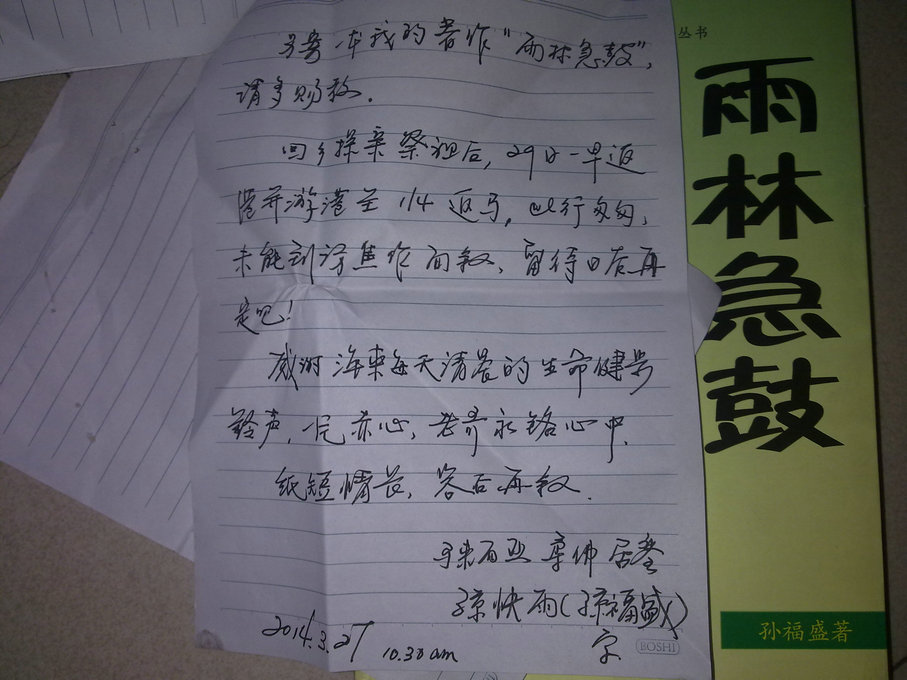 另寄一本我的着作“雨林急鼓”，
请多赐教。
回乡探亲祭祖后，29日一早返
港并游港至1/4返马，此行匆匆，
未能到访焦作面叙，留待日后再
是吧！
感谢海来每天清晨的生命健号
铃声，一片赤心，老乔永铭心中，
纸短情长，容后再叙．
马来西亚 柔佛 居銮
孙快雨（孙福盛）
字
2014.3.27 10.30am
BOSHI
丛书
雨林急鼓
孙福盛著